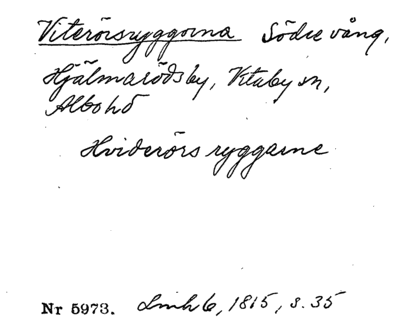 Viterörsryggorna Södre vång,
Hjälmarödsby, Vtaby sn,
Albo hd
Hviderörs ryggarne
Nr 5973. Lmh 6, 1815, s. 35